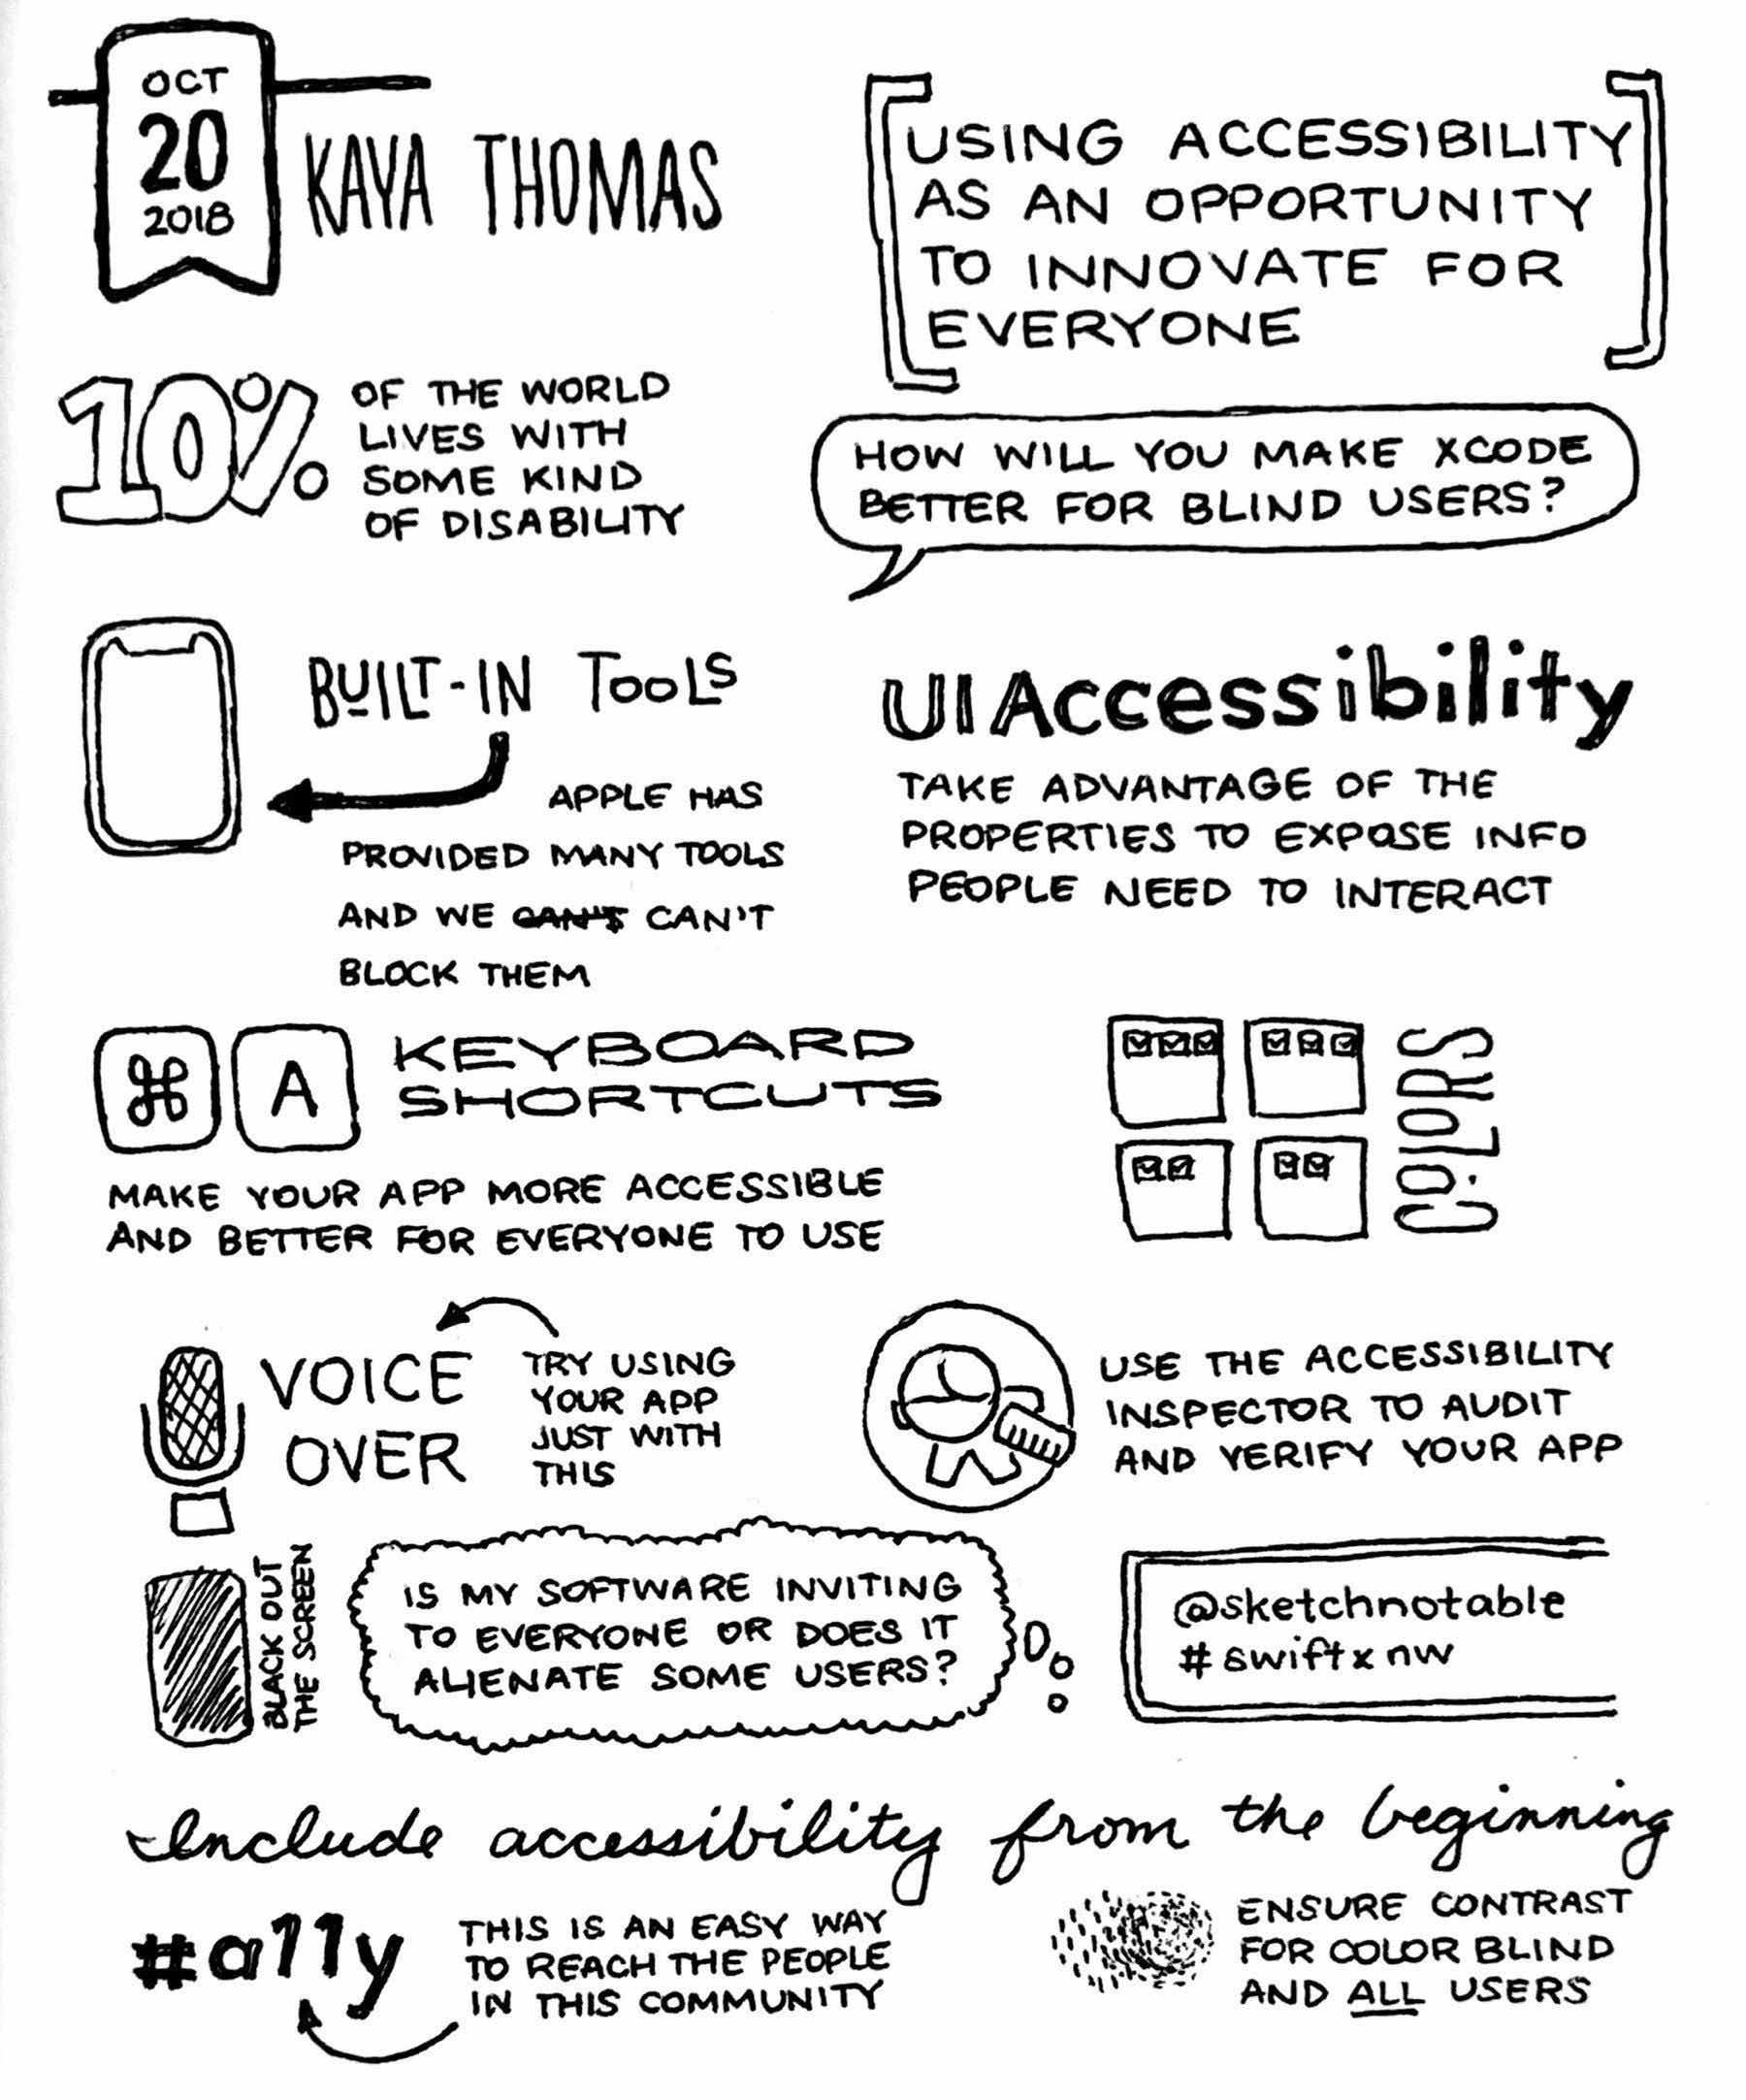 OCT
20
2018
KAYA THOMAS
USING ACCESSIBILITY
AS AN OPPORTUNITY
TO INNOVATE FOR
EVERYONE
10%
OF THE WORLD
LIVES WITH
SOME KIND
OF DISABILITY
HOW WILL YOU MAKE XCODE
BETTER FOR BLIND USERS?
BUILT-IN TOOLS
APPLE HAS
PROVIDED MANY TOOLS
AND WE CAN'T CAN'T
BLOCK THEM
UIAccessibility
TAKE ADVANTAGE OF THE
PROPERTIES TO EXPOSE INFO
PEOPLE NEED TO INTERACT
⌘ A
KEYBOARD
SHORTCUTS
MAKE YOUR APP MORE ACCESSIBLE
AND BETTER FOR EVERYONE TO USE
COLORS
VOICE
OVER
TRY USING
YOUR APP
JUST WITH
THIS
USE THE ACCESSIBILITY
INSPECTOR TO AUDIT
AND VERIFY YOUR APP
BLACK OUT
THE SCREEN
IS MY SOFTWARE INVITING
TO EVERYONE OR DOES IT
ALIENATE SOME USERS?
@sketchnotable
#swiftxnw
Include accessibility from the beginning
#a11y
THIS IS AN EASY WAY
TO REACH THE PEOPLE
IN THIS COMMUNITY
ENSURE CONTRAST
FOR COLOR BLIND
AND ALL USERS